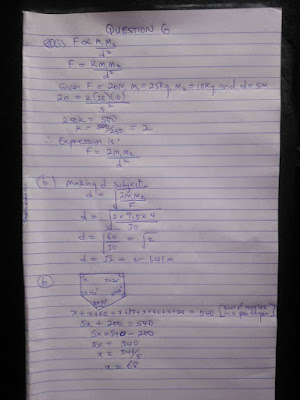 QUESTION 6
(a) is F ∝ m₁m₂/d²
F = km₁m₂/d²
Given F = 20N, m₁ = 25kg, m₂ = 10kg and d = 5m
20 = k(25)(10)/5²
250k = 500
k = 500/250 = 2
∴ Expression is:
F = 2m₁m₂/d²
(ii) Making d subject
d = √(2m₁m₂/F)
d = √(2×7.5×4/30)
d = √(60/30) = √2
d = √2 m or 1.41m
(b)
x + x+60 + x+80 + x+40 + x+20 = 540 [sum of angles in a pentagon]
5x + 200 = 540
5x = 540 - 200
5x = 340
x = 340/5
x = 68